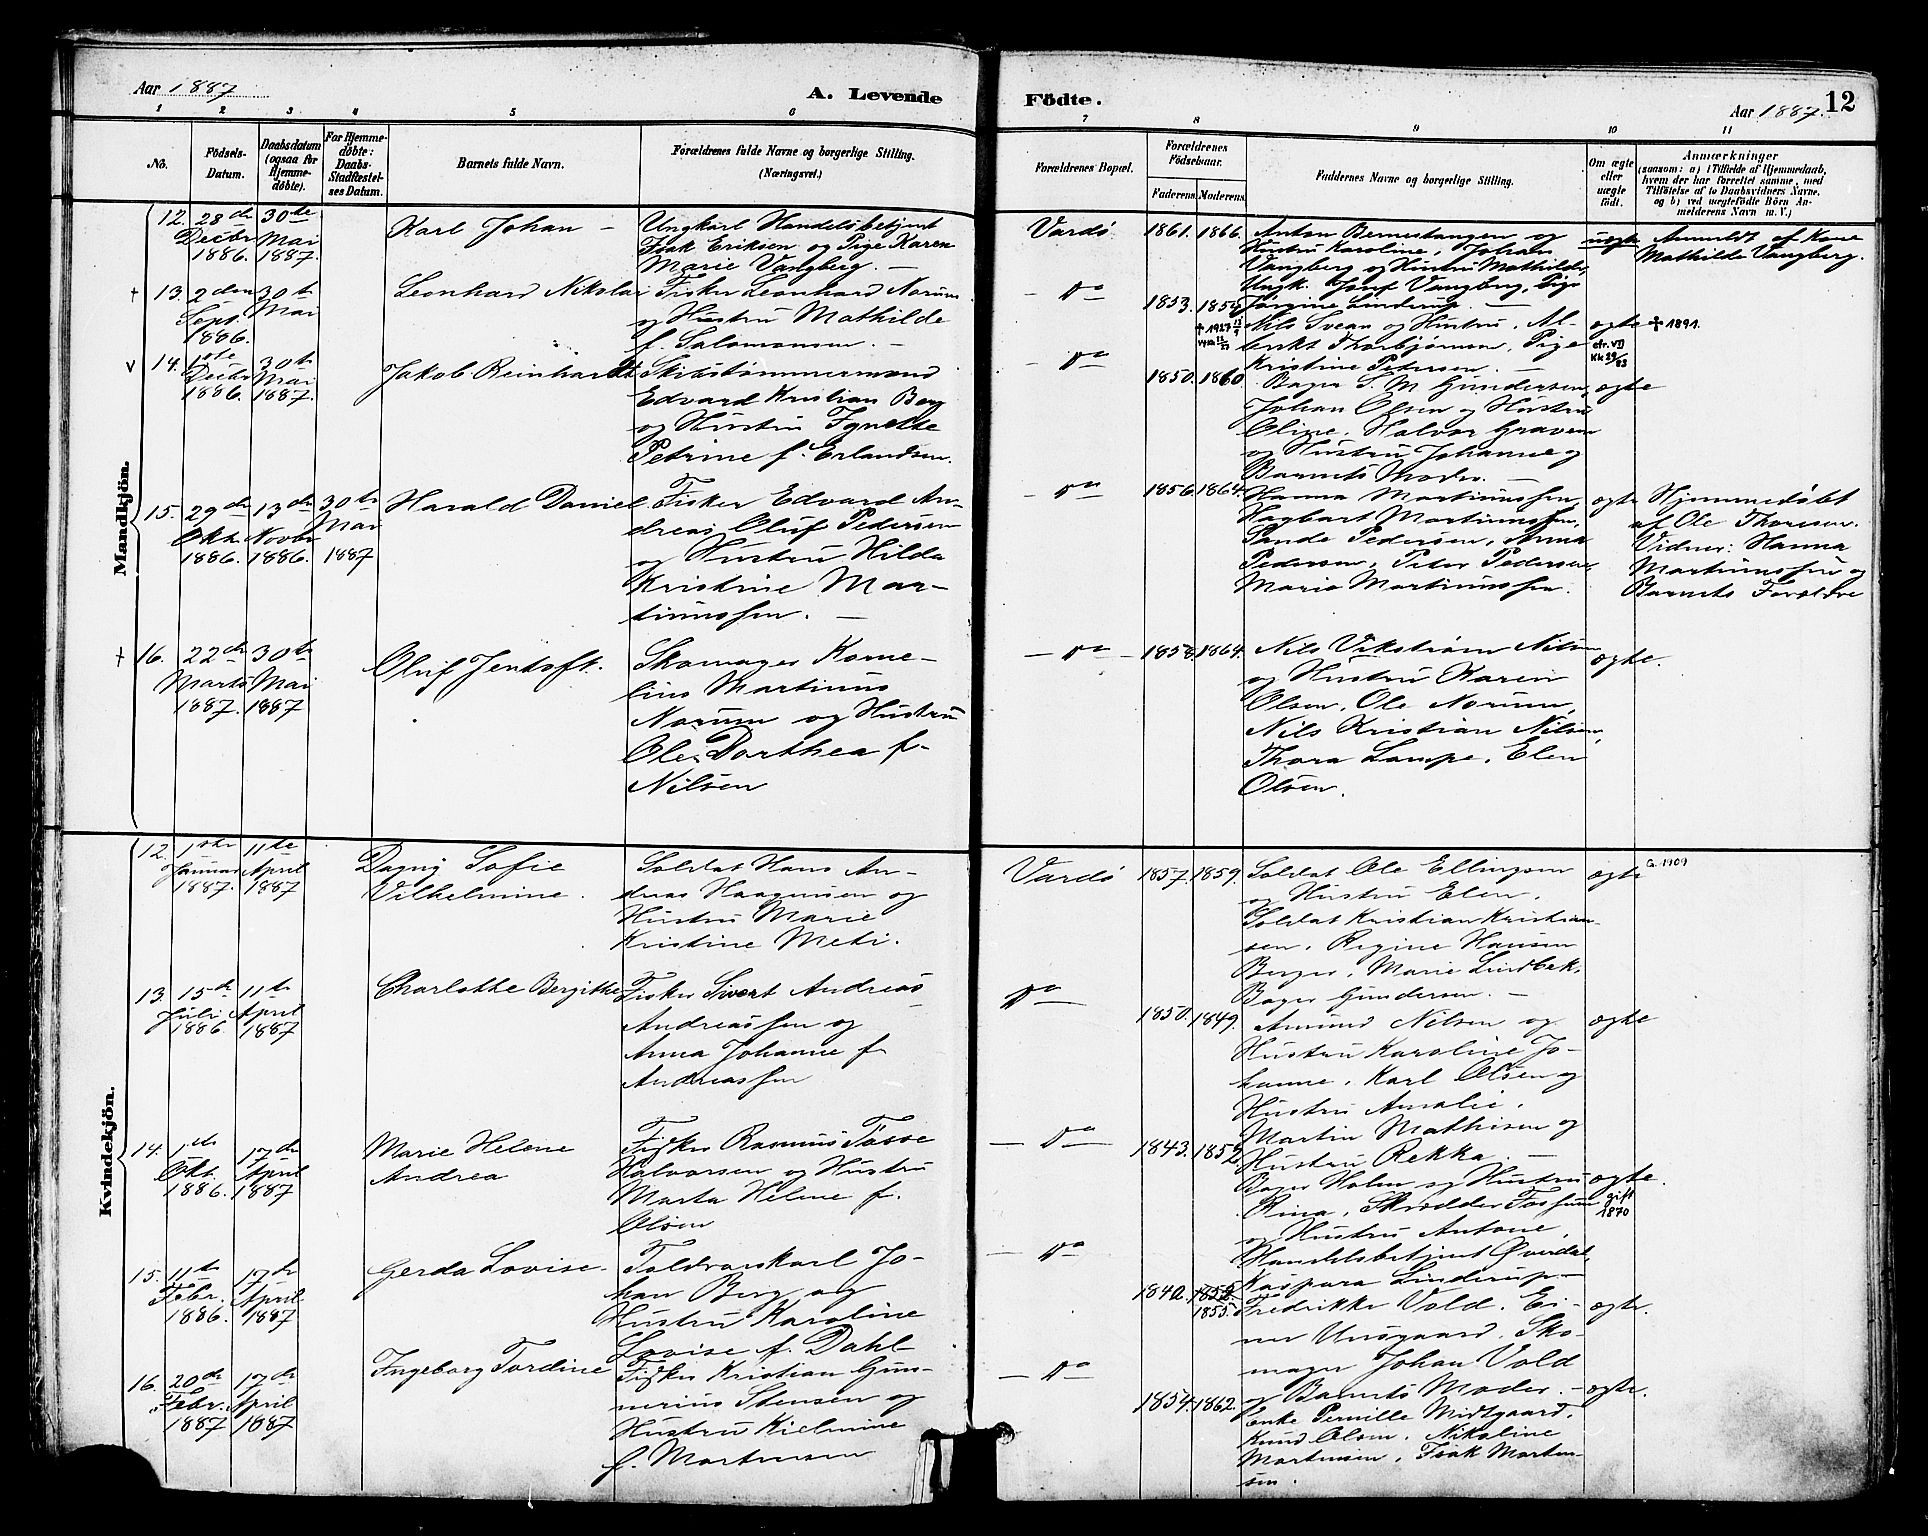 Aar 1887
A. Levende
Födte.
Aar 1887. 12
1 2 3 4 5 6 7 8 9 10 11
No.
Födsels-
Datum.
Daabsdatum
(ogsaa for
Hjemme-
döbte).
For Hjemme-
döbte:
Daabs-
Stadfæstel-
ses Datum.
Barnets fulde Navn.
Forældrenes fulde Navne og borgerlige Stilling.
(Næringsvei.)
Forældrenes Bopæl.
Forældrenes
Födselsaar.
Faderens. Moderens.
Faddernes Navne og borgerlige Stilling.
Om ægte
eller
uægte
födt.
Anmærkninger
(saasom: a) i Tilfælde af Hjemmedaab,
hvem der har forrettet samme, med
Tilföielse af to Daabsvidners Navne.
og b) ved uægtefödte Börn An-
melderens Navn m. V.)
Mandkjön.
12.
28de
Decbr
1886.
30te
Mai
1887.
Karl Johan –
Ungkarl Handelsbetjent
Isak Eriksen og Pige Karen
Marie Vangberg. –
Vardö
1861. 1866.
Anton Bernestangen og
Hustru Karoline, Johan
Vangberg og Hustru Mathilde,
Ungk. Josef Vangberg, Pige
Jörgine Linderup. –
uægte
Anmeldt af Kone
Mathilde Vangberg.
† 13.
2den
Sept.
1886.
30te
Mai
Leonhard Nikolai
Fisker Leonhard Norum
og Hustru Mathilde
f. Salomonsen. –
– Do
1853. 1854
† 1927
Nils Svean og Hustru, Al-
bert Thorbjørnsen, Pige
Kristine Pedersen. –
ægte
✝ 1891.
v 14.
1ste
Decbr
1886.
30te
Mai
1887.
Jakob Reinhardt
Skibstømmermand
Edvard Kristian Berg
og Hustru Agnethe
Petrine f. Erlandsen.
– Do
1850. 1860
Bager S. M Gundersen,
Johan Olsen og Hustru
Oline, Halvor Graven
og Hustru Johanne og
Barnets Moder. –
ægte
15.
29de
Okt.
1886.
13de
Novbr
1886.
30te
Mai
1887
Harald Daniel
Fisker Edvard An-
dreas Oluf Pedersen
og Hustru Hilda
Kristine Mar-
tinussen. –
– Do
1856. 1864.
Hanna Martinussen,
Hagbart Martinussen,
Sande Pedersen, Anna
Pedersen, Peter Pedersen,
Marie Martinussen.
ægte
Hjemmedøbt
af Ole Thoresen.
Vidner: Hanna
Martinussen og
Barnets Forældre
† 16.
22de
Marts
1887.
30te
Mai
1887
Oluf Jentoft.
Skomager Korne-
lius Martinus
Norum og Hustru
Ole Dorthea f.
Nilsen
– Do –
1858. 1864.
Nils Vikstrøm Nilsen
og Hustru Karen
Olsen, Ole Norum,
Nils Kristian Nilsen,
Thora Lampe, Elen
Olsen.
ægte.
Kvindekjön.
12.
1ste
Januar
1887.
11te
April
1887
Dagny Sofie
Vilhelmine.
Soldat Hans An-
dreas Haagensen og
Hustru Marie
Kristine Meti.
Vardö
1857. 1859.
Soldat Ole Ellingsen
og Hustru Elen,
Soldat Kristian Kristian-
sen, Regine Hansen
Berger, Marie Lindbek,
Bager Gundersen. –
ægte
G. 1909
13.
15de
Juli
1886
11te
April
1887
Charlotte Bergitte
Fisker Sivert Andreas
Andreassen og
Anna Johanne f
Andreassen
Do
1850. 1849.
Amund Nilsen og
Hustru Karoline Jo-
hanne, Karl Olsen og
Hustru Amalie,
Martin Mathisen og
Hustru Rekka. –
ægte
14.
1ste
Okt.
1886.
17de
April
1887
Marie Helene
Andrea
Fisker Rasmus Tösse
Halvorsen og Hustru
Marta Helene f.
Olsen
– Do
1843. 1852
Bager Holm og Hustru
Rina, Skrædder Fossum
og Hustru Antone,
Handelsbetjent Øverdal,
Kaspara Linderup –
ægte.
gift
1870
15.
11te
Febr.
1886.
17de
April
1887
Gerda Lovise.
Toldvarskarl Jo-
han Berg og
Hustru Karoline
Lovise f. Dahl
– Do
1842. 1852.
1855.
Fredrikke Vold, Ei-
ner Unsgaard, Sko-
mager Johan Vold
og Barnets Moder. –
ægte.
16.
20de
Febr.
1887
17de
April
1887
Ingeborg Tordine
Fisker Kristian Gun-
nerius Stensen og
Hustru Kielmine
f. Mortensen
– Do
1854. 1862.
Enke Pernille Midtgaard,
Knud Olsen, Nikoline
Mortensen, Isak Morten-
sen.
ægte.